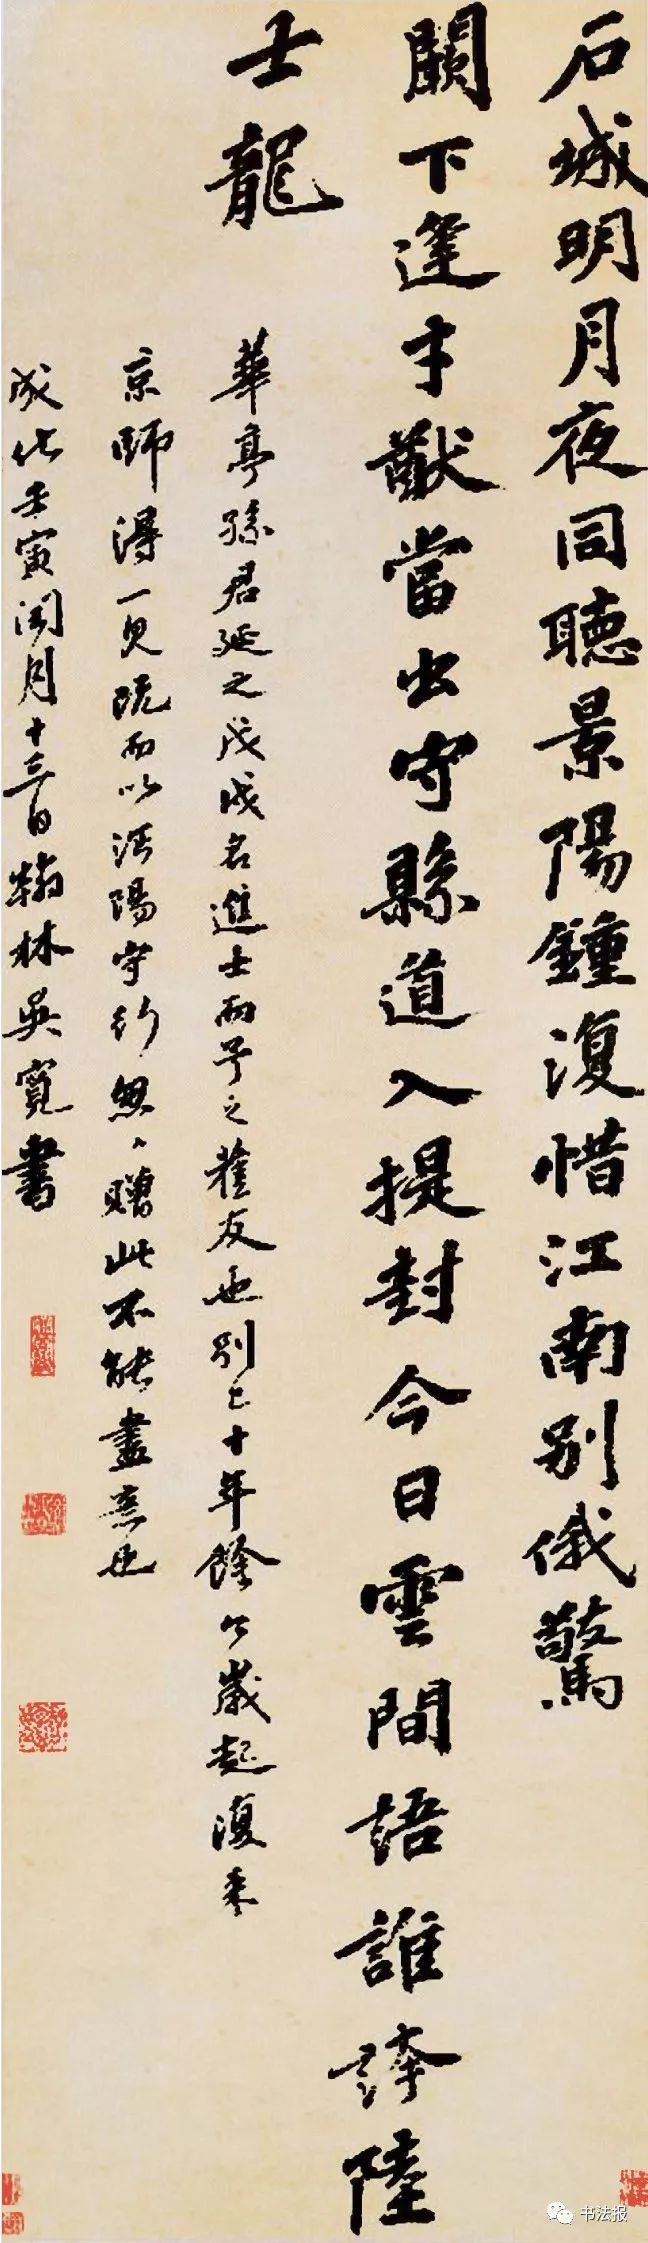 石城明月夜同聽景陽鍾復惜江南別俄驚
闕下逢才猷當出守縣道入提封今日雲間語誰誇陸
士龍
華亭孫君延之戊戌名進士而予之舊友也別已十年餘今歲起復來
京師得一見既而以沔陽守行怱〻贈此不能盡意也
成化壬寅閏月十三日翰林吳寬書
书法报